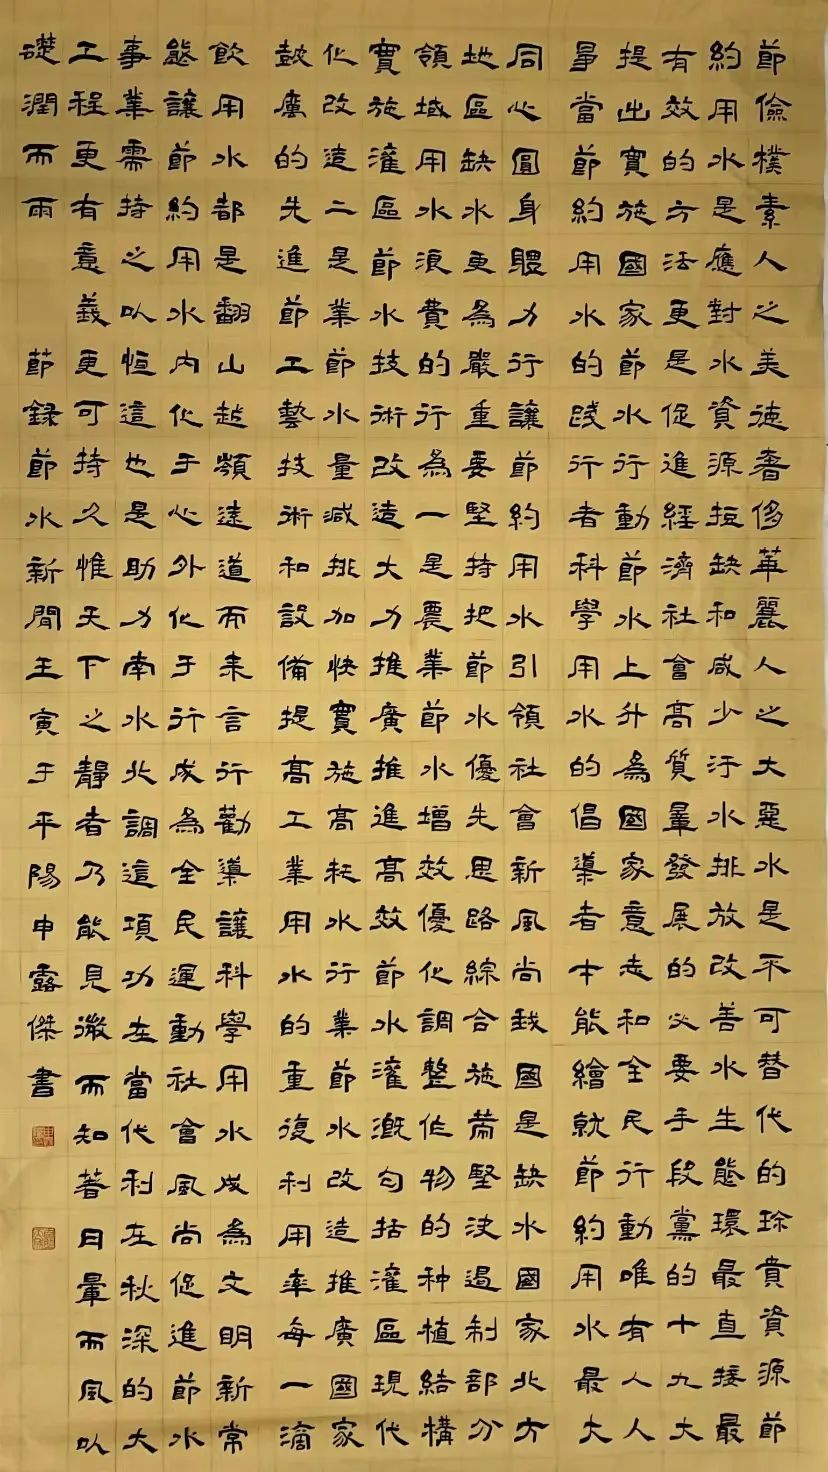 節儉樸素人之美德奢侈華麗人之大惡水是不可替代的珍貴資源節
約用水是應對水資源短缺和咸少汙水排放改善水生態環最直接最
有效的方法更是促進經濟社會高質量發展的必要手段黨的十九大
提出實施國家節水行動節水上升為國家意志和全民行動唯有人人
爭當節約用水的踐行者科學用水的倡導者本能繪就節約用水最大
同心圓身體力行讓節約用水引領社會新風尚我國是缺水國家北方
地區缺水更為嚴重要堅持把節水優先思路綜合施策堅決遏制部分
領域用水浪費的行為一是農業節水增效優化調整作物的种植結構
實施灌區節水技術改造大力推廣推進高效節水灌溉包括灌區現代
化改造二是業節水量減排加快實施高耗水行業節水改造推廣國家
鼓廣的先進節工藝技術和設備提高工業用水的重復利用率每一滴
飲用水都是翻山越嶺遠道而來言行勸導讓科學用水成為文明新常
態讓節約用水內化于心外化于行成為全民運動社會風尚促進節水
事業需持之以恒這也是助力南水北調這項功在當代利在秋深的大
工程更有意義更可持久惟天下之靜者乃能見微而知著月暈而風以
礎潤而雨 節錄節水新聞壬寅于平陽申露傑書